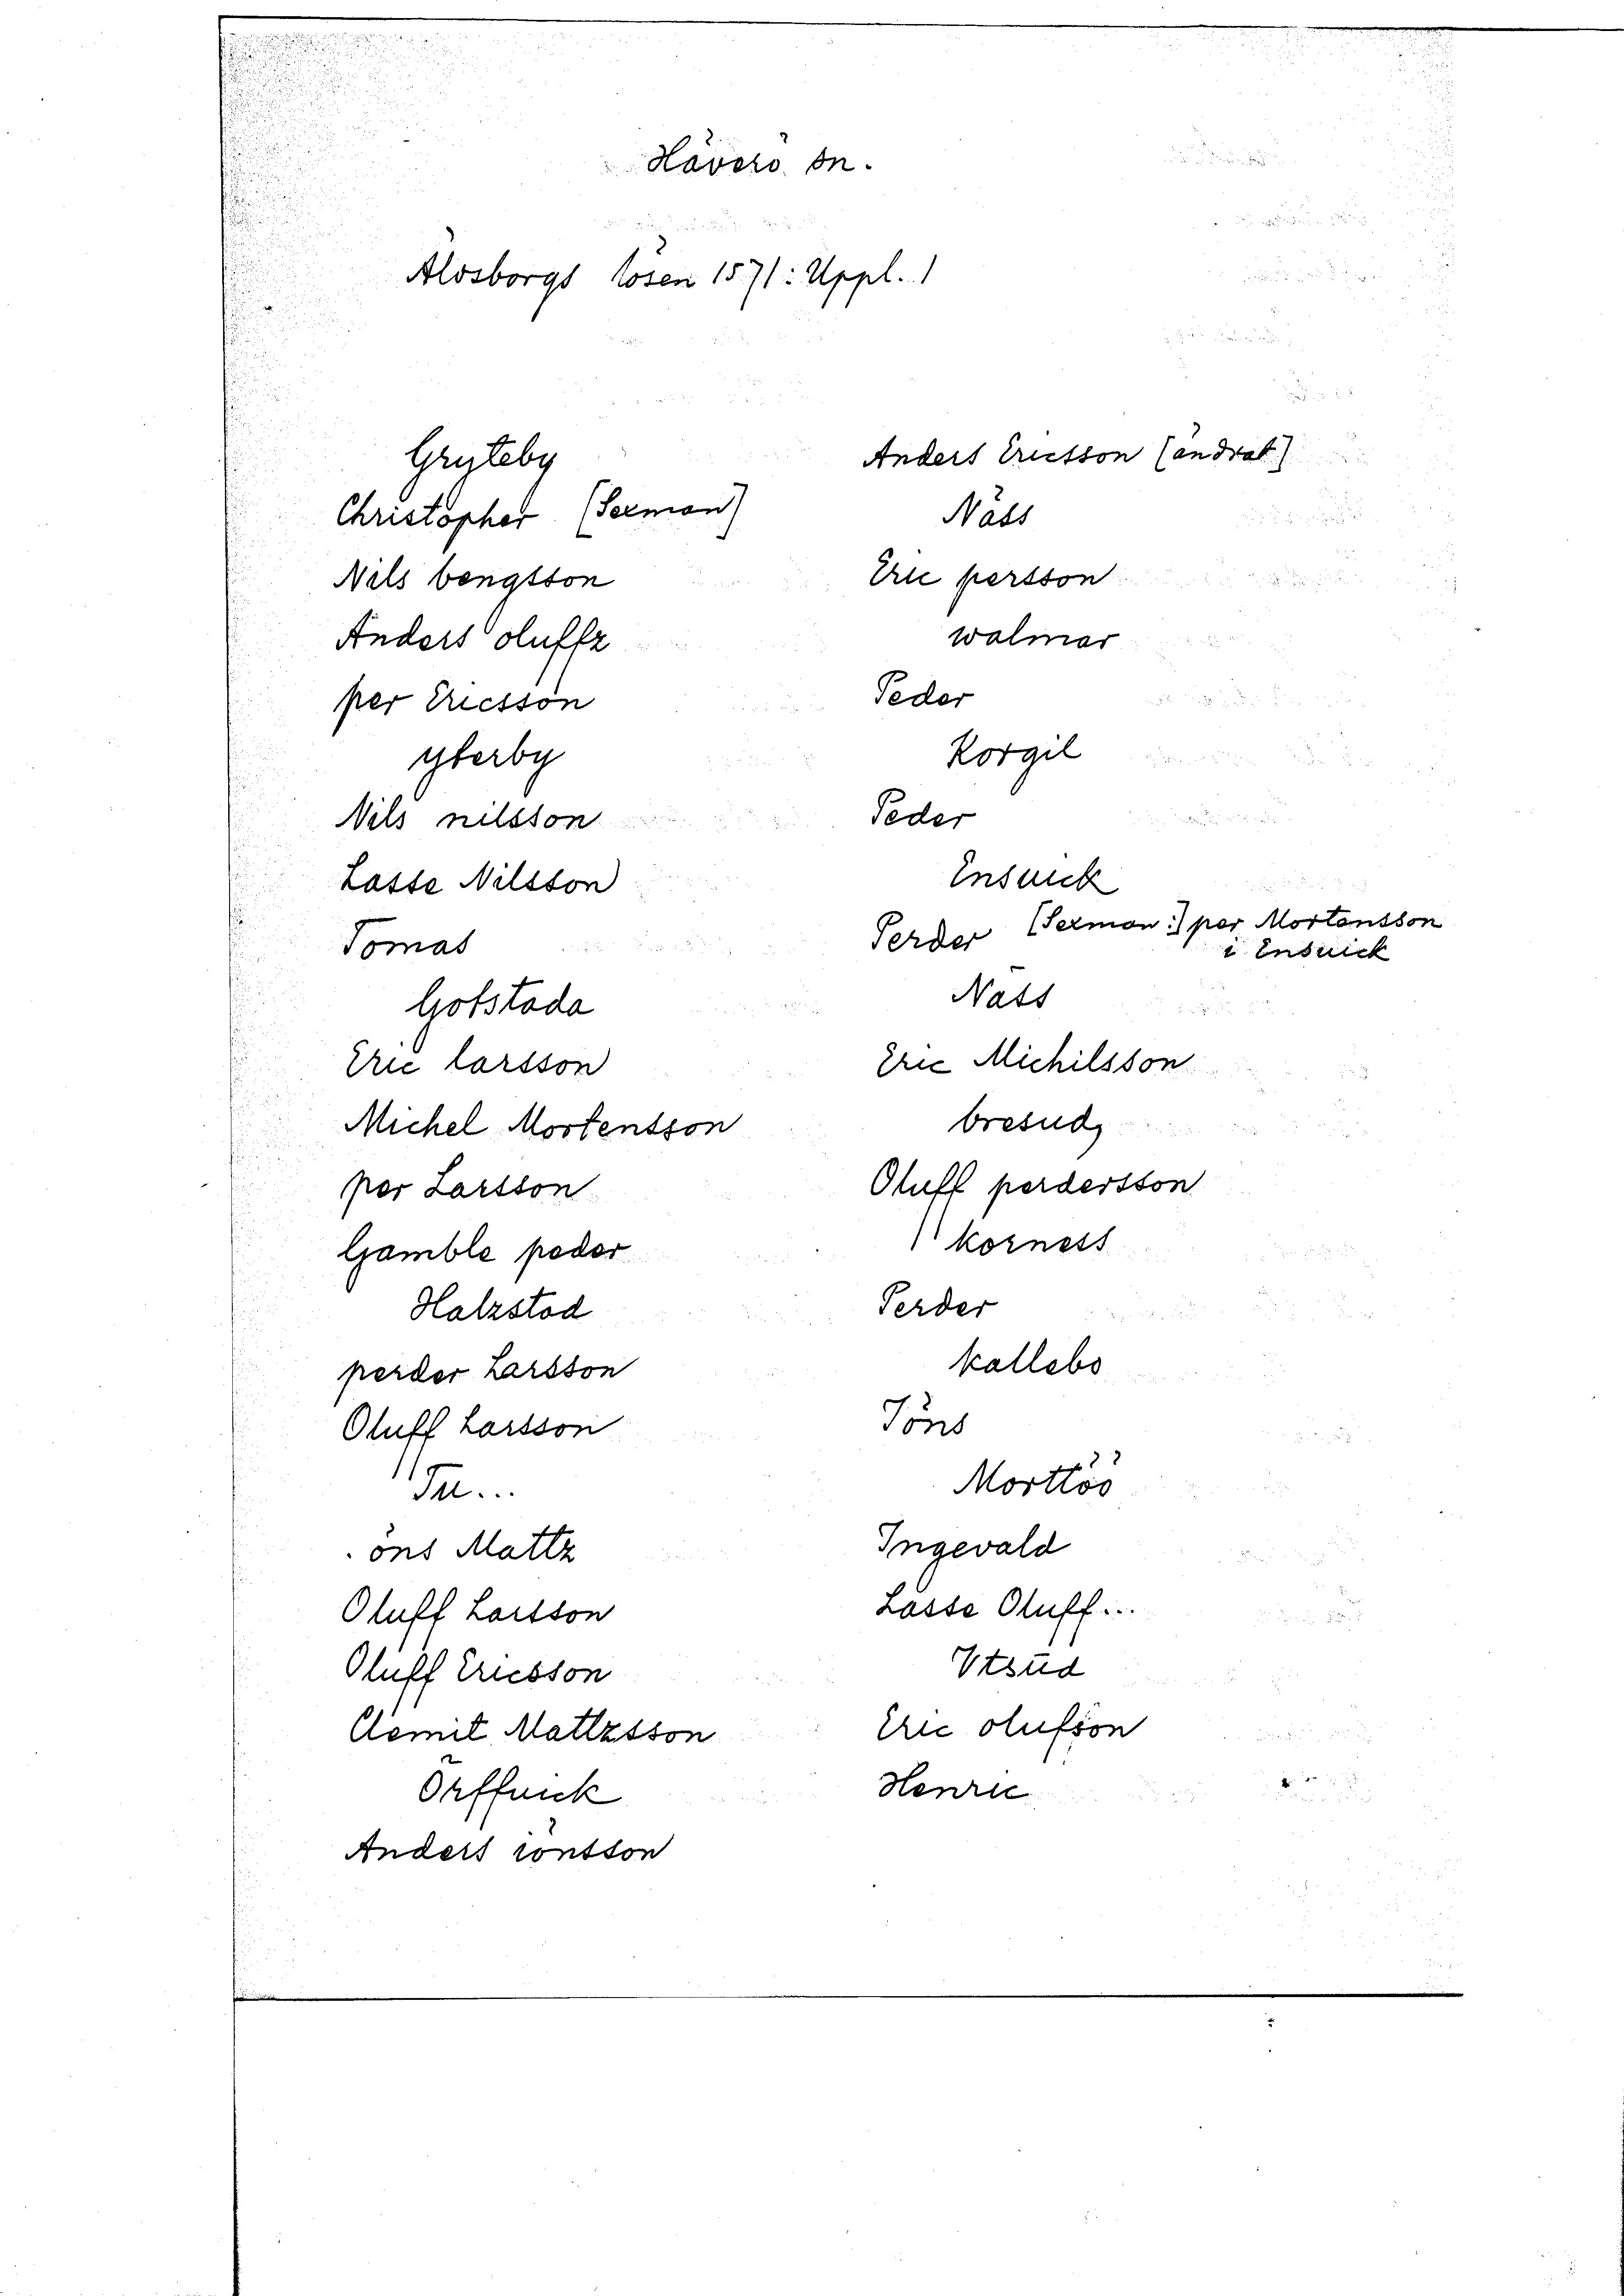 Häverö sn.
Älvsborgs lösen 1571: Uppl. 1
Gryteby
Christopher (Sexman)
Nils bengtson
Anders oluffz
per Ericsson
yterby
Nils nilsson
Lasse Nilsson
Tomas
Gotstada
Eric larsson
Michel Mortensson
per Larsson
Gamble peder
Halzstad
perder Larsson
Oluff Larsson
Tu...
.öns Mattz
Oluff Larsson
Oluff Ericsson
Clemit Matlzsson
Örffuick
Anders iönsson
Anders Ericsson (ändrat)
Näss
Eric persson
walmar
Peder
Korgil
Peder
Ensuick
Perder (Sexman:) per Mortensson
i Ensuick
Näss
Eric Michilsson
bresud,
Oluff perdersson
korness
Perder
kallebo
Jöns
Morttöö
Ingevald
Lasse Oluff...
Vtsud
Eric olufson
Henric